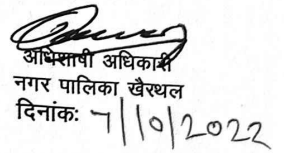 अधिशाषी अधिकारी
नगर पालिका खैरथल
दिनांकः 7/10/2022